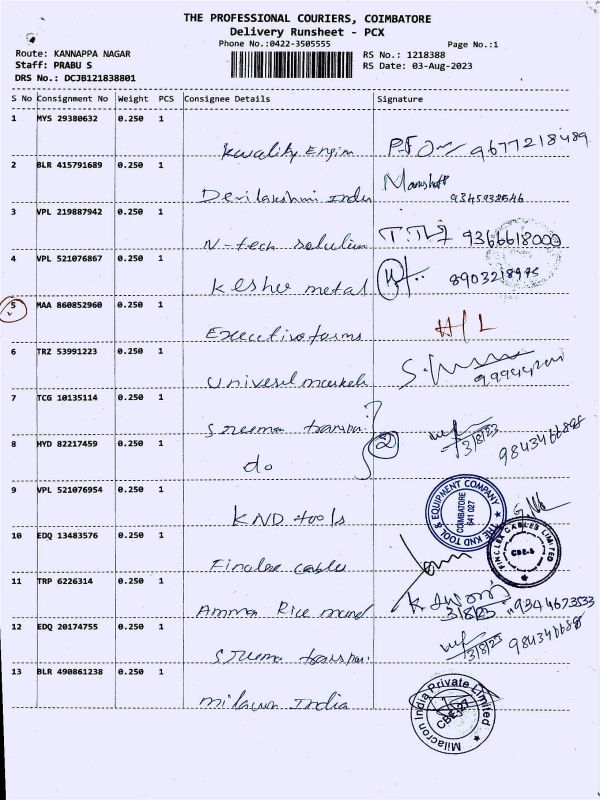 THE PROFESSIONAL COURIERS, COIMBATORE
Delivery Runsheet - PCX
Phone No.:0422-3505555
Page No.:1
Route: KANNAPPA NAGAR
RS No.: 1218388
Staff: PRABU S
RS Date: 03-Aug-2023
DRS No.: DCJB121838801
S No Consignment No Weight PCS Consignee Details Signature
1 MYS 29380632 0.250 1
Kwality Engim 9677218489
2 BLR 415791689 0.250 1
Devilakshmi Indu
3 VPL 219887942 0.250 1
N-tech solution 9366618000
4 VPL 521076867 0.250 1
Kesher metal 8903218975
5 MAA 860852960 0.250 1
Executive H/L
6 TRZ 53991223 0.250 1
7 TCG 10135114 0.250 1
3/8/23
8 HYD 82217459 0.250 1
do 2
9 VPL 521076954 0.250 1
KND tools
THE KND TOOL & EQUIPMENT COMPANY
COIMBATORE
641 027
10 EDQ 13483576 0.250 1
FINCLEX CABLES LIMITED
CBE-6
11 TRP 6226314 0.250 1
Amma Rice mand
12 EDQ 20174755 0.250 1
3/8/23
13 BLR 490861238 0.250 1
India
Milacron India Private Limited